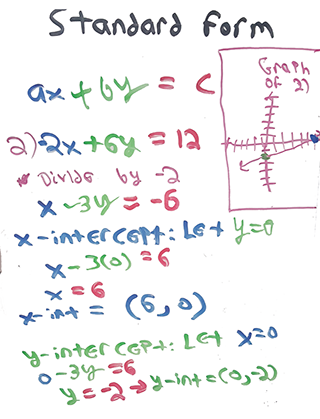 Standard Form
ax + by = c
Graph
of 2)
2) -2x + 6y = 12
* Divide by -2
x - 3y = -6
x-intercept: Let y=0
x - 3(0) = 6
x = 6
x-int = (6, 0)
y-intercept: Let x=0
0 - 3y = 6
y = -2 → y-int = (0, -2)